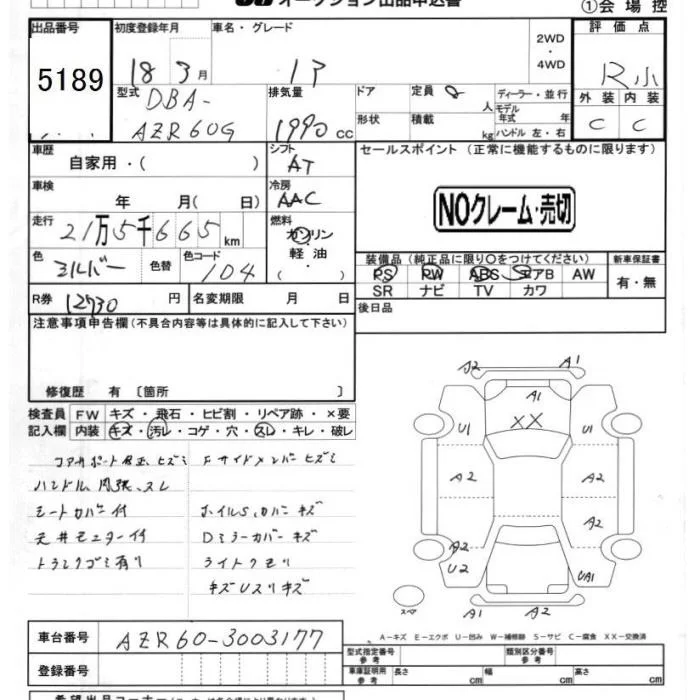 オークション出品申込書
①会場控
出品番号 初度登録年月 車名・グレード 2WD・4WD 評価点
5189 18 3月 R小
型式 DBA-AZR60G 排気量 1990cc ドア 定員 8人 ディーラー・並行 外装 内装
形状 積載 kg モデル年式 年 ハンドル 左・右 C C
車歴 自家用・( ) シフト AT セールスポイント (正常に機能するものに限ります)
車検 年 月( 日) 冷房 AAC
NOクレーム・売切
走行 21万5千665km 燃料 ガソリン 軽油・
色 シルバー 色替 色コード 104
装備品 (純正品に限り○をつけてください) 新車保証書
PS PW ABS エアB AW 有・無
SR ナビ TV カワ
R券 12730円 名変期限 月 日 後日品
注意事項申告欄(不具合内容等は具体的に記入して下さい)
修復歴 有 〔箇所 〕
検査員 FW キズ・飛石・ヒビ割・リペア跡・×要
記入欄 内装 キズ・汚レ・コゲ・穴・スレ・キレ・破レ
コアサポート 歪、ヒズミ Fサイドメンバーヒズミ
ハンドル スレ
シートカバー付 ホイルS、カバーキズ
天井モニター付 Dミラーカバーキズ
トランクゴミ有り ライトクモリ
キズUスリキズ
A2 A1
A1
XX
U1 U1
A2 A2
A2
A2
U2 UA1
スペア A1 A2
A－キズ E－エクボ U－凹み W－補修跡 S－サビ C－腐食 XX－交換済
車台番号 AZR60-3003177
型式指定番号 参考 類別区分番号 参考
登録番号 車庫証明用 参考 長さ cm 幅 cm 高さ cm
希望出品コーナー